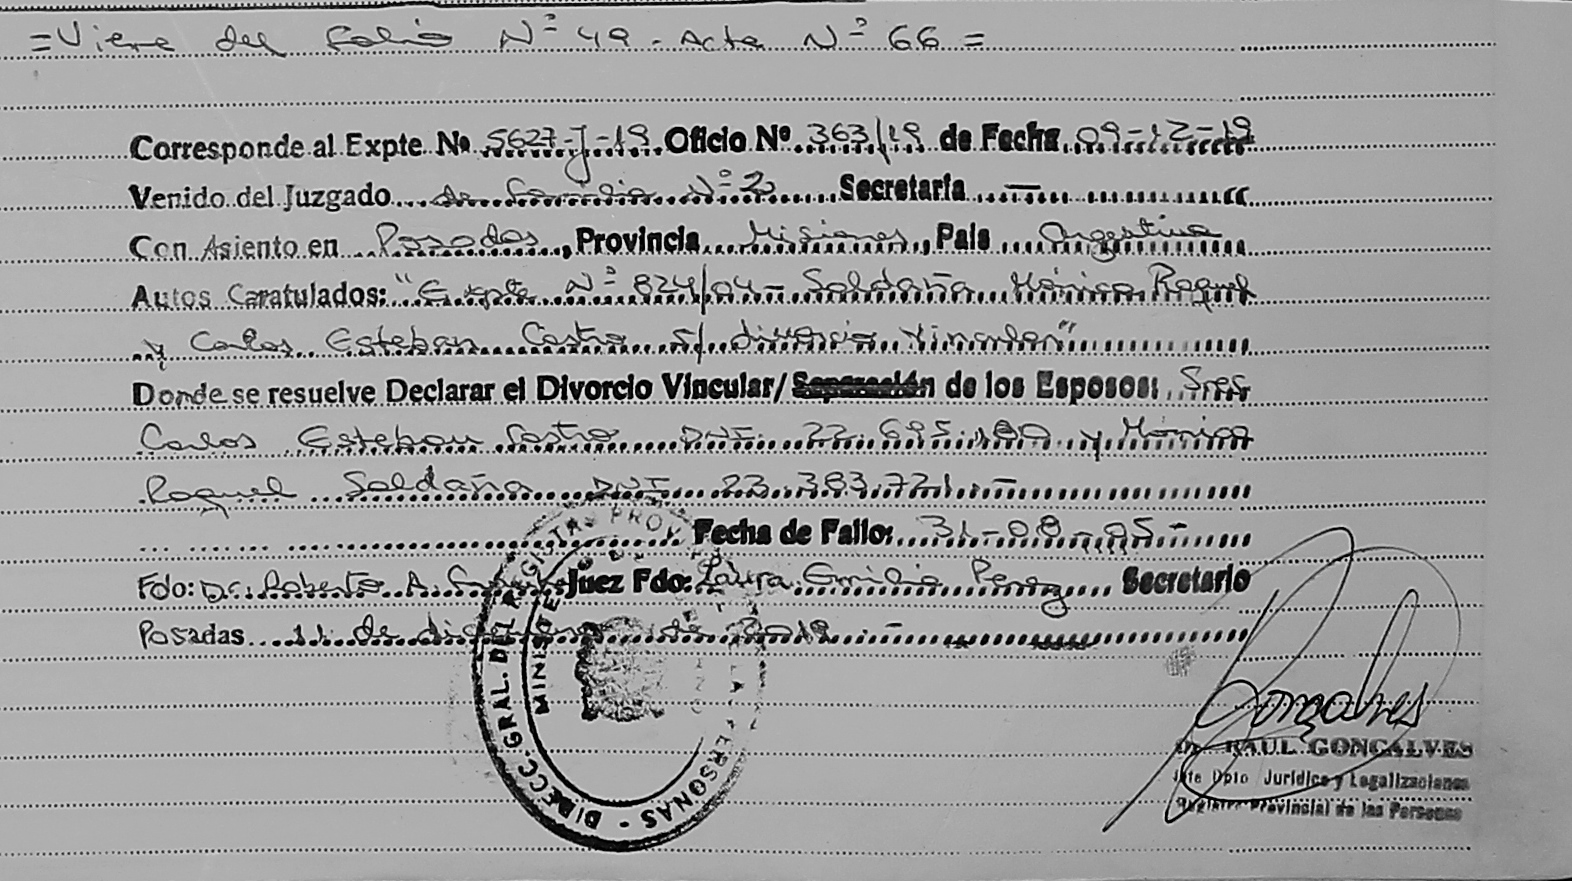 =Viene del folio Nº 49 - Acta Nº 66=
Corresponde al Expte. Nº 5627-J-19. Oficio Nº 363/19 de Fecha 09-12-19
Venido del Juzgado de familia Nº 2 Secretaría -
Con Asiento en Posadas, Provincia Misiones, País Argentina
Autos Caratulados: "Expte Nº 824/04 - Saldaña Mónica Raquel
y Carlos Esteban Castro s/ divorcio Vincular"
Donde se resuelve Declarar el Divorcio Vincular/ Separación de los Esposos: Sres
Carlos Esteban Castro DNI 22.695. y Mónica
Raquel Saldaña DNI 23.383.721.-
Fecha de Fallo: 31-08-05-
Fdo: Dr. Roberto A. Juez Fdo: Laura Emilia Perez Secretario
Posadas 11 de diciembre de 2019.-
DIRECC. GRAL. DEL REGISTRO PROV. DE LAS PERSONAS
MINISTE
Gonçalves
Dr. RAUL GONCALVES
Jefe Dpto Jurídico y Legalizaciones
Registro Provincial de las Personas